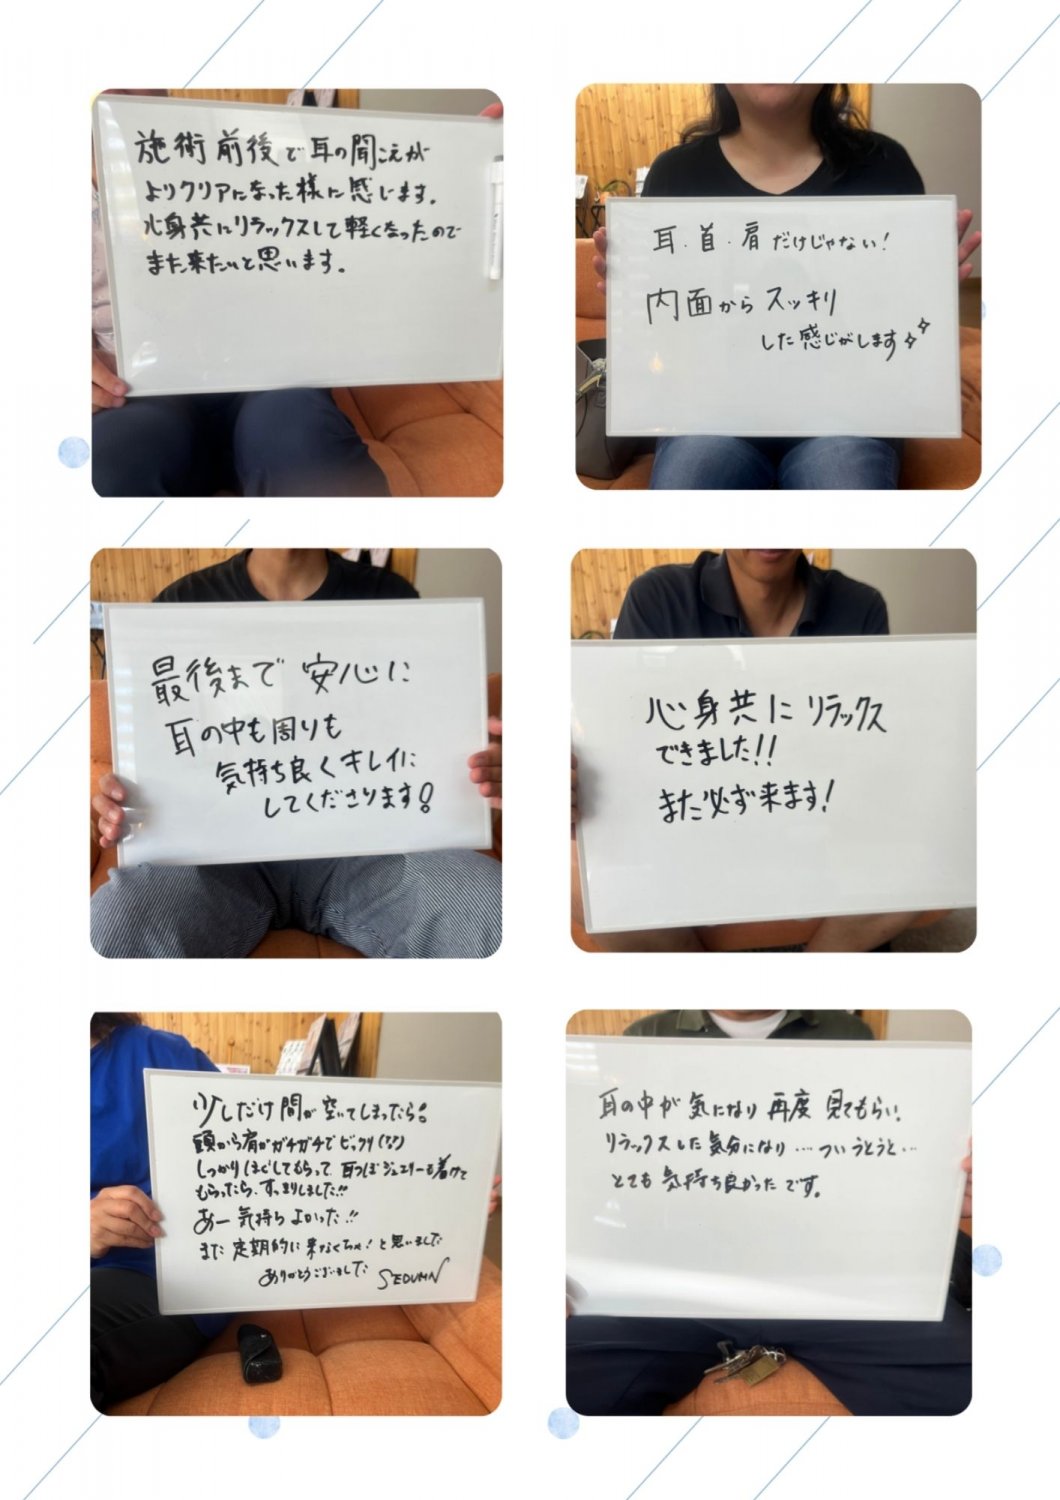 施術前後で耳の聞こえが
よりクリアになった様に感じます。
心身共にリラックスして軽くなったので
また来たいと思います。
耳・首・肩だけじゃない!
内面からスッキリ
した感じがします
最後まで安心に
耳の中も周りも
気持ち良くキレイに
してくださります!
心身共にリラックス
できました!!
また必ず来ます!
少しだけ間が空いてしまったら!
頭から肩がガチガチでビックリ(笑)
しっかりほぐしてもらって、耳つぼジュエリーも着けて
もらったら、すっきりしました!!
あー気持ちよかった!!
また定期的に来なくちゃ!と思いました
ありがとうございました SEDUMN
耳の中が気になり再度見てもらい、
リラックスした気分になり…ついうとうと…
とても気持ち良かったです。